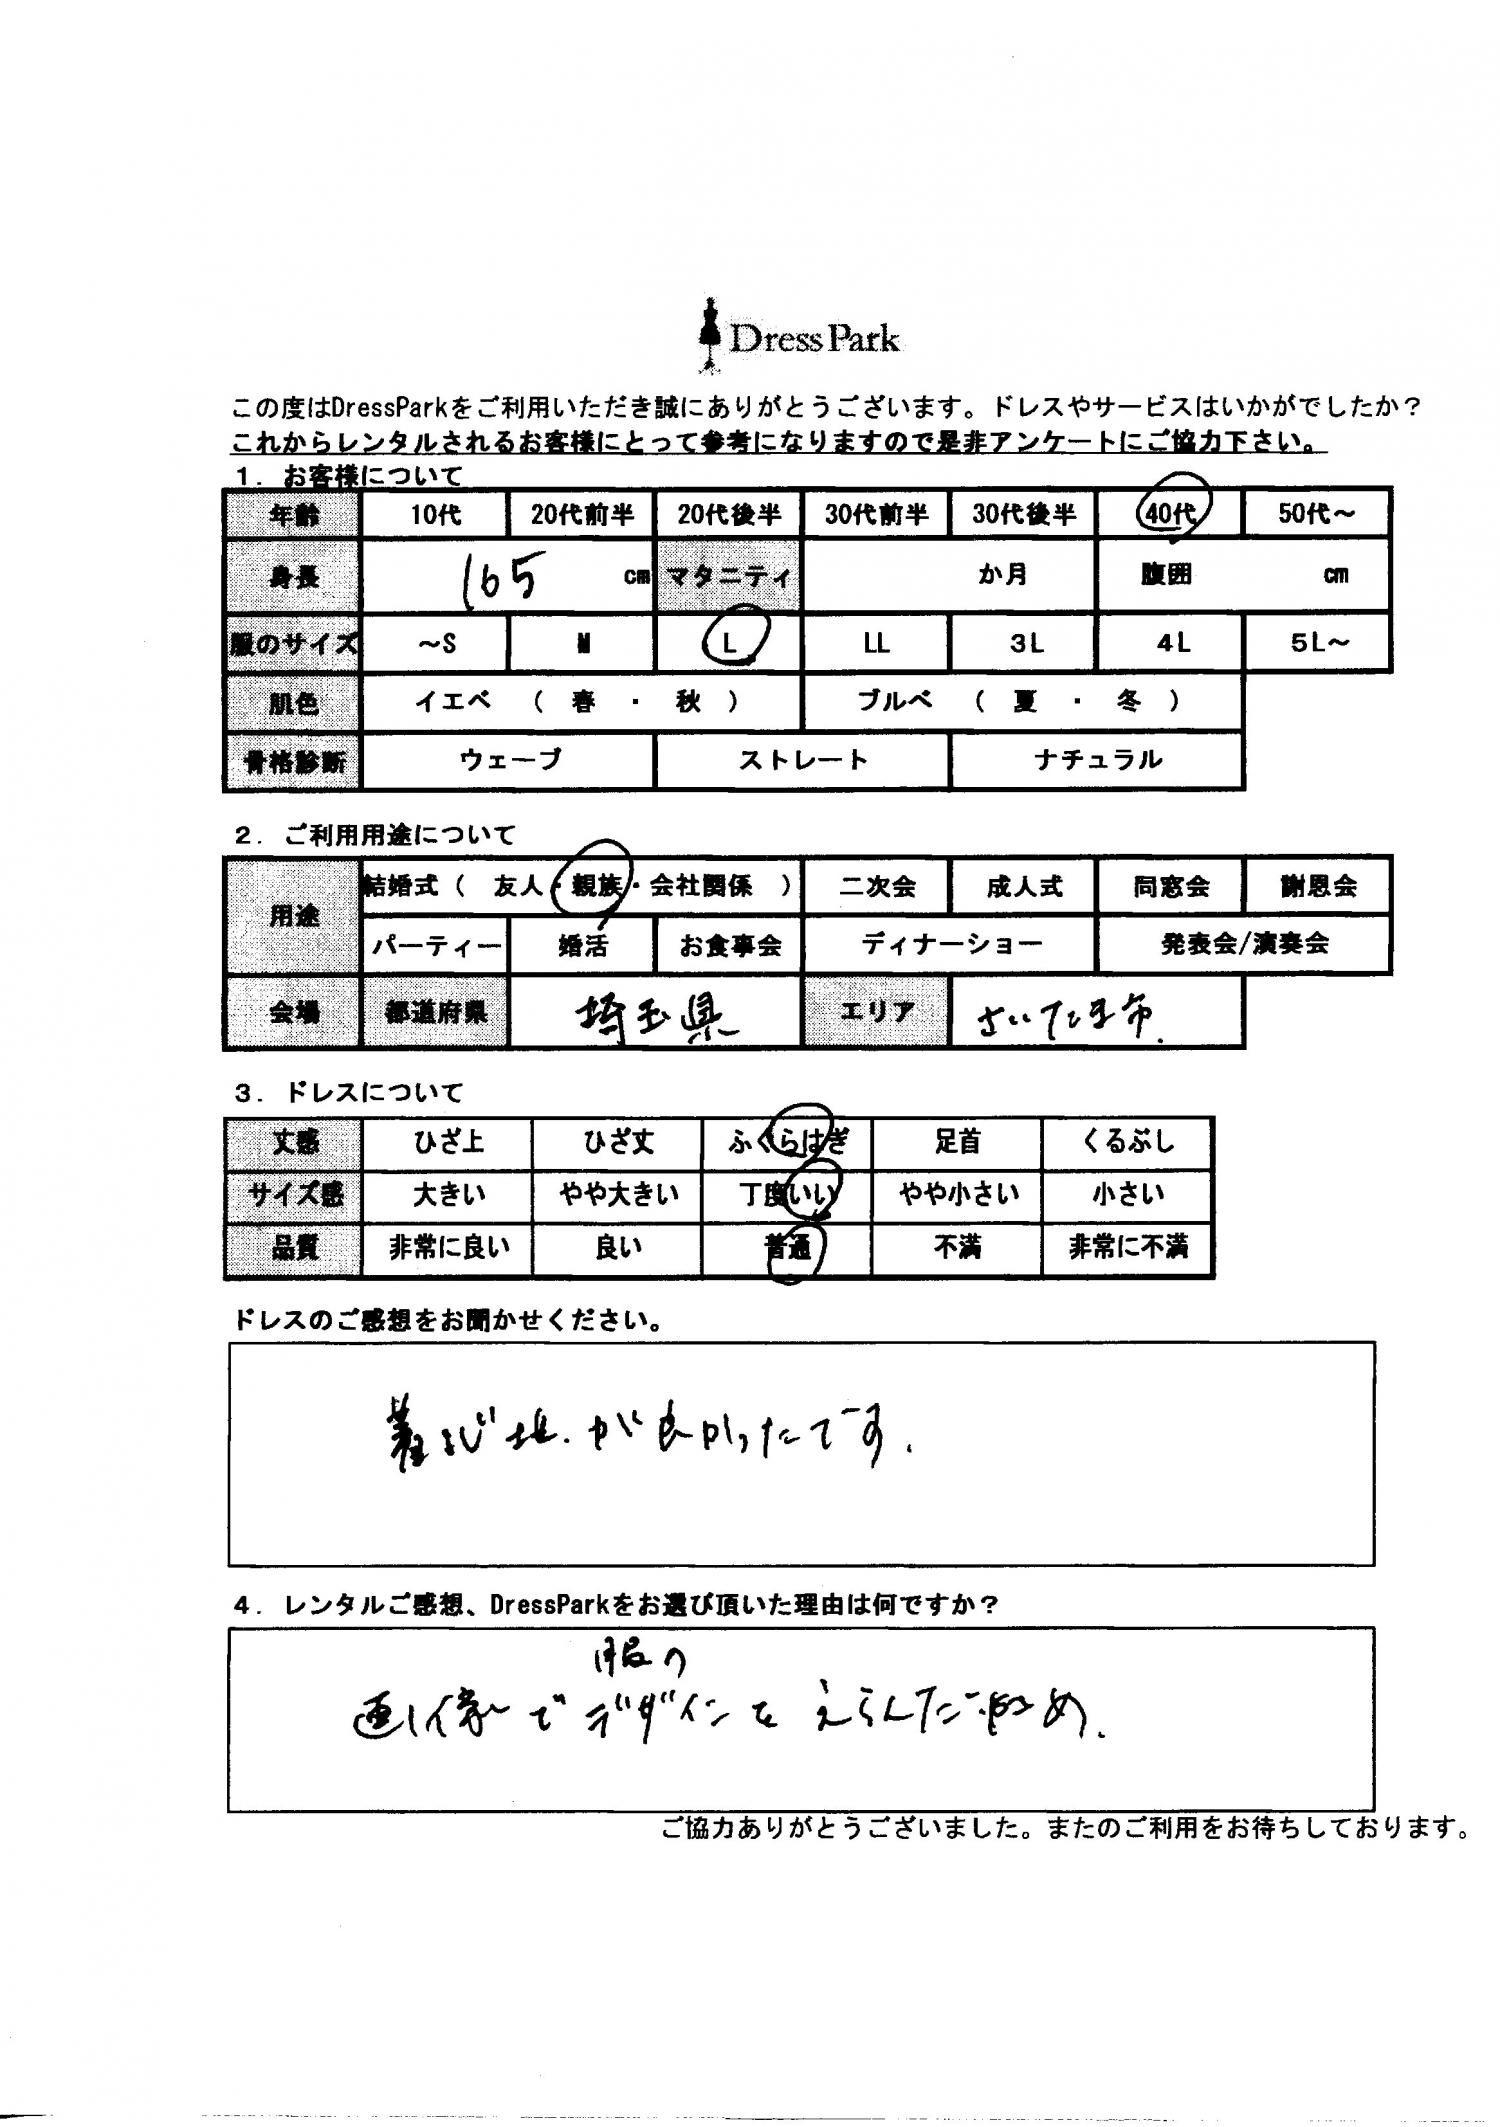 DressPark
この度はDressParkをご利用いただき誠にありがとうございます。ドレスやサービスはいかがでしたか？
これからレンタルされるお客様にとって参考になりますので是非アンケートにご協力下さい。
1. お客様について
年齢 10代 20代前半 20代後半 30代前半 30代後半 40代 50代～
身長 165 cm マタニティ か月 腹囲 cm
服のサイズ ～S M L LL 3L 4L 5L～
肌色 イエベ （ 春 ・ 秋 ） ブルベ （ 夏 ・ 冬 ）
骨格診断 ウェーブ ストレート ナチュラル
2. ご利用用途について
用途 結婚式（ 友人・親族・会社関係 ） 二次会 成人式 同窓会 謝恩会
パーティー 婚活 お食事会 ディナーショー 発表会/演奏会
会場 都道府県 埼玉県 エリア さいたま市.
3. ドレスについて
丈感 ひざ上 ひざ丈 ふくらはぎ 足首 くるぶし
サイズ感 大きい やや大きい 丁度いい やや小さい 小さい
品質 非常に良い 良い 普通 不満 非常に不満
ドレスのご感想をお聞かせください。
が良かったです.
4. レンタルご感想、DressParkをお選び頂いた理由は何ですか？
服の
画像でデザインをえらんだ為.
ご協力ありがとうございました。またのご利用をお待ちしております。